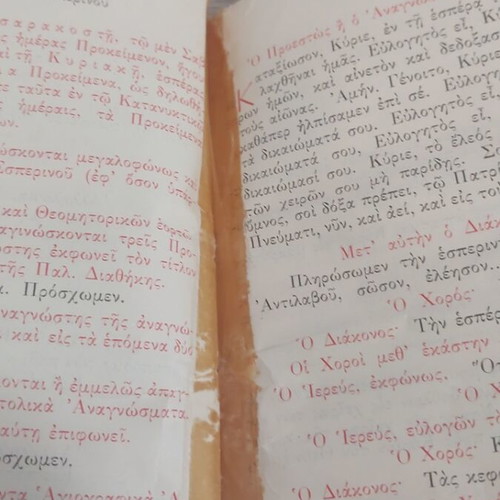 σαρακοστῆς, τῷ μὲν Σαβ
ς ἡμέρας Προκείμενον, ἤγου
αὶ τῇ Κυριακῇ, ἑσπέρα
α Προκείμενα, ὡς δηλωθή
τε ταῦτα ἐν τῷ Κατανυκτικ
ς ἡμέραις, τὰ Προκείμενα
ων.
ώσκονται μεγαλοφώνως κα
Ἑσπερινοῦ (ἐφ' ὅσον ὑπάρ
καὶ Θεομητορικῶν ἑορτῶν
αγινώσκονται τρεῖς Προ-
στης ἐκφωνεῖ τὸν τίτλον
τῆς Παλ. Διαθήκης.
α. Πρόσχωμεν.
ναγνώστης τῆς ἀναγνώ-
, καὶ εἰς τὰ ἑπόμενα δύο
κονται ἢ ἐμμελῶς ἀπαγ-
τολικὰ Ἀναγνώσματα.
αύτῃ ἐπιφωνεῖ.
σχωμεν.
Ὁ Προεστὼς ἢ ὁ Ἀναγνώσ
Καταξίωσον, Κύριε, ἐν τῇ ἑσπέρᾳ
λαχθῆναι ἡμᾶς. Εὐλογητὸς εἶ, Κ
ρων ἡμῶν, καὶ αἰνετὸν καὶ δεδοξασ
τοὺς αἰῶνας. Ἀμήν. Γένοιτο, Κύριε
καθάπερ ἠλπίσαμεν ἐπὶ σέ. Εὐλογη
τὰ δικαιώματά σου. Εὐλογητὸς εἶ,
δικαιώματά σου. Εὐλογητὸς εἶ,
δικαιώμασί σου. Κύριε, τὸ ἔλεός
τῶν χειρῶν σου μὴ παρίδῃς. Σο
ὕμνος, σοὶ δόξα πρέπει, τῷ Πατρ
Πνεύματι, νῦν, καὶ ἀεί, καὶ εἰς το
Μετ' αὐτὴν ὁ Διάκ
Πληρώσωμεν τὴν ἑσπεριν
Ἀντιλαβοῦ, σῶσον, ἐλέησον
Ὁ Χορός·
Ὁ Διάκονος· Τὴν ἑσπέρ
Οἱ Χοροὶ μεθ' ἑκάστην
Ὁ Ἱερεύς, ἐκφώνως. Ὅτ
Ὁ Ἱερεύς, εὐλογῶν τὸ
Ὁ Χορός· Κ
Ὁ Διάκονος· Τὰς κεφ